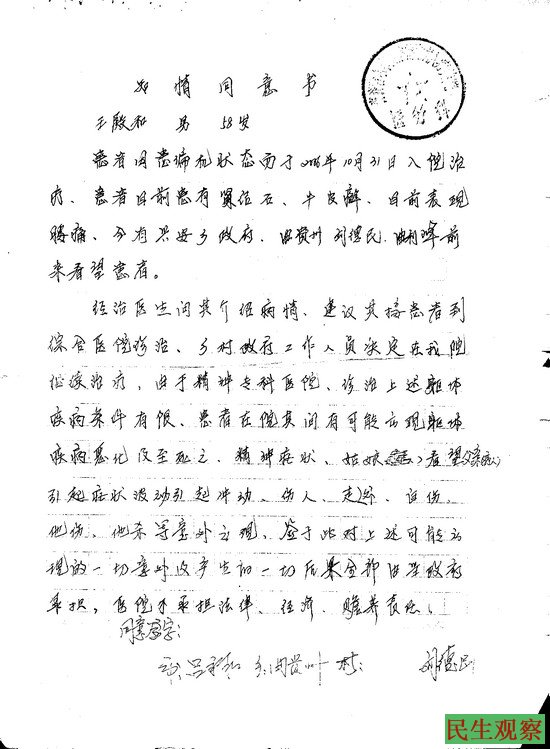 知情同意书
王殷和 男 58岁
患者因患 状态而于 年10月31日入院治
疗、患者目前患有肾结石、牛皮癣、目前表现
腰痛、今有 乡政府、 刘德民、 前
来看望患者。
经治医生向其介绍病情、建议其接患者到
综合医院诊治、乡村政府工作人员决定在我院
继续治疗，由于精神专科医院、诊治上述躯体
疾病条件有限、患者在院其间有可能出现躯体
疾病恶化及至死亡、精神症状、姑娘 看望
引起症状波动引起冲动、伤人、 、自伤、
他伤、他杀等意外出现、鉴于此对上述可能出
现的一切意外及产生的一切后果全部由 政府
承担，医院不承担法律、经济、赡养责任、
同意签字：
村： 刘德民
民生观察